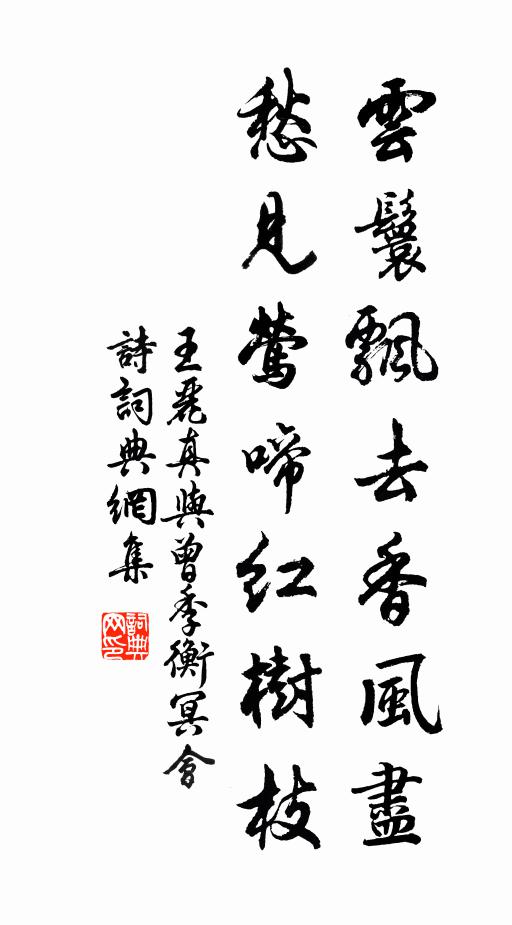 雲鬟飄去香風盡
愁見鶯啼紅樹枝
王麗真與曾季衡冥會
詩詞典網集
詞典
网印